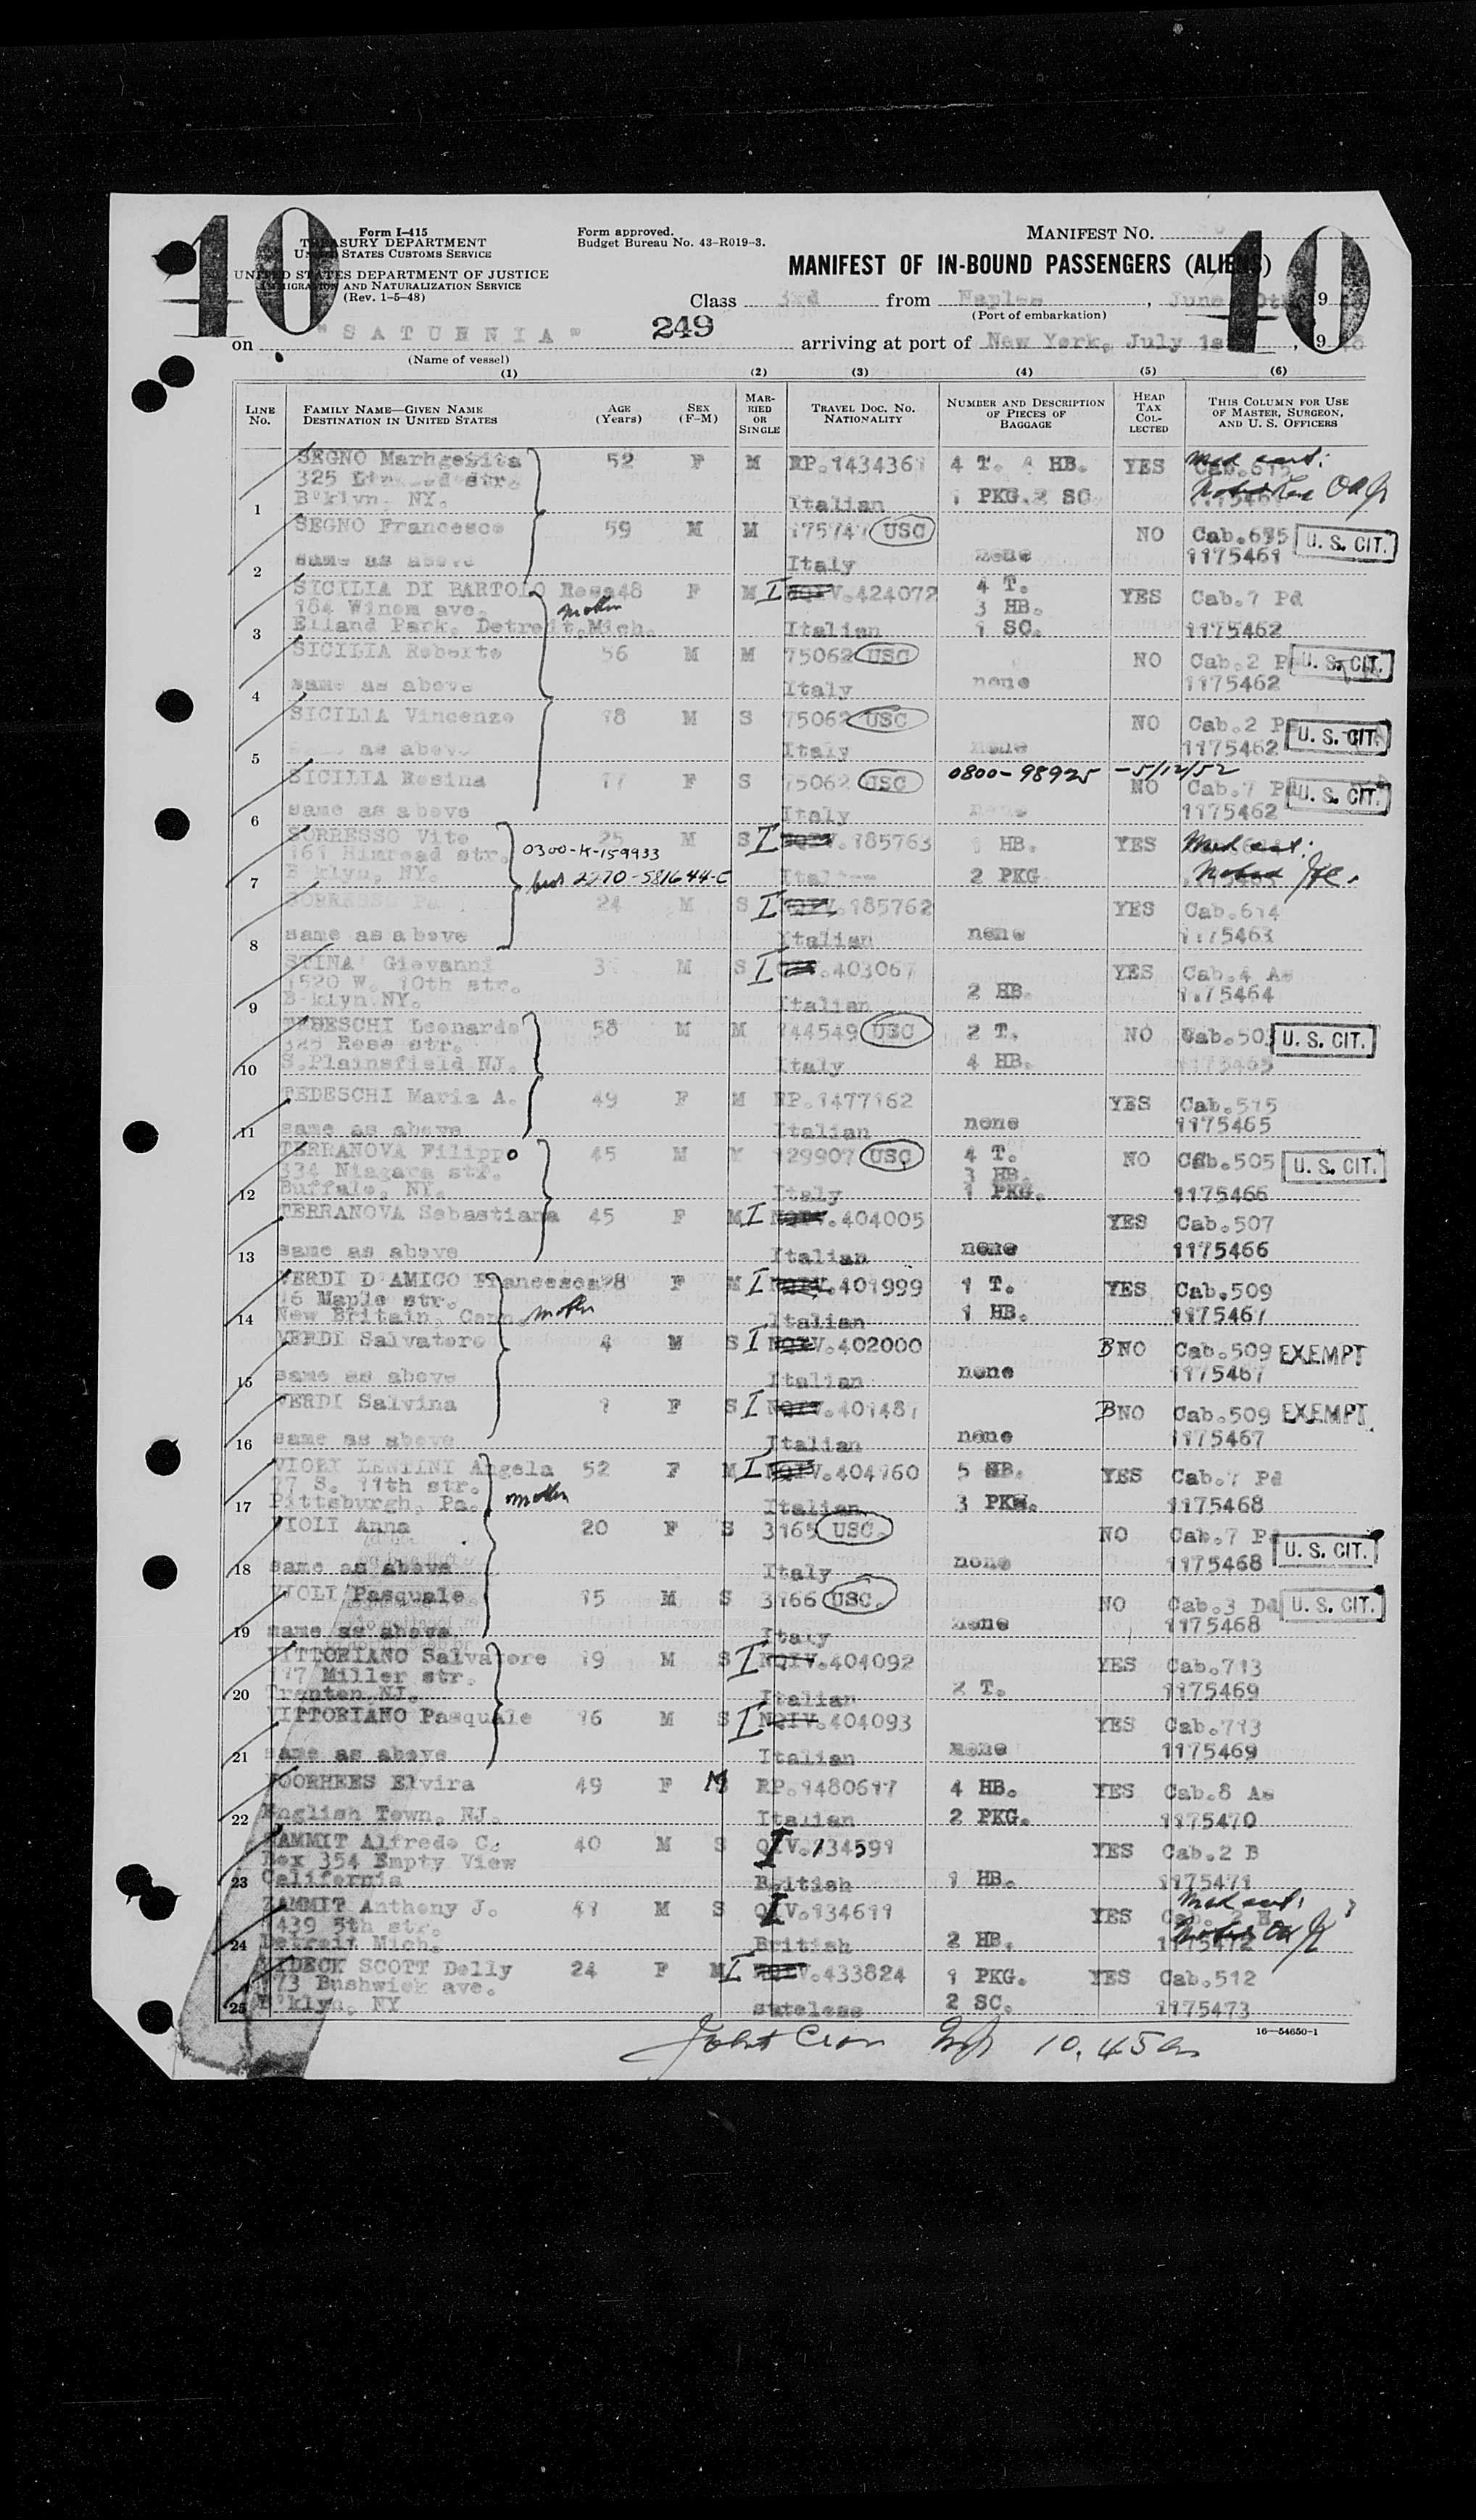 40
Form I-415
TREASURY DEPARTMENT
UNITED STATES CUSTOMS SERVICE
UNITED STATES DEPARTMENT OF JUSTICE
IMMIGRATION AND NATURALIZATION SERVICE
(Rev. 1-5-48)
Form approved.
Budget Bureau No. 43-R019-3.
MANIFEST NO.
40
MANIFEST OF IN-BOUND PASSENGERS (ALIENS)
Class 3rd from Naples, June
(Port of embarkation)
on "SATURNIA" 249 arriving at port of New York, July 1st, 19
(Name of vessel)
(1) (2) (3) (4) (5) (6)
LINE No. FAMILY NAME—GIVEN NAME DESTINATION IN UNITED STATES AGE (Years) SEX (F-M) MARRIED OR SINGLE TRAVEL DOC. NO. NATIONALITY NUMBER AND DESCRIPTION OF PIECES OF BAGGAGE HEAD TAX COLLECTED THIS COLUMN FOR USE OF MASTER, SURGEON, AND U. S. OFFICERS
SEGNO 52 F M RP.1434361 4 T. 4 HB. YES Med cert: Cab.615
325 str.
1 B'klyn. NY. Italian 1 PKG.2 SC.
SEGNO Francesco 59 M M 175747 USC NO Cab.615 U. S. CIT.
2 same as above Italy none 1175461
SICILIA DI BARTOLO Rosa 48 F M I NQIV.424072 4 T. YES Cab.7 Pd
184 Winom ave. mother 3 HB.
3 Elland Park. Detroit,Mich. Italian 1 SC. 1175462
SICILIA Roberto 56 M M 75062 USC NO Cab.2 U. S. CIT.
4 same as above Italy none 1175462
SICILIA Vincenzo 18 M S 75062 USC NO Cab.2 U. S. CIT.
5 as above Italy none 1175462
0800-98925 -5/12/52
SICILIA Rosina 17 F S 75062 USC NO Cab.7 U. S. CIT.
6 same as above Italy none 1175462
SORRESSO Vito 25 M S I NQIV.185763 1 HB. YES Med cert:
161 Himread str. 0300-K-159933
7 B'klyn, NY. 2270-581644-C Italian 2 PKG
SORRESSO 24 M S I NQIV.185762 YES Cab.614
8 same as above Italian none 1175463
STINA' Giovanni M S I .403067 YES Cab.4 As
1520 W. 10th str. 2 HB.
9 B'klyn.NY. Italian 1175464
TEDESCHI Leonardo 58 M M 144549 USC 2 T. NO Cab.503 U. S. CIT.
325 Rose str.
10 S.Plainsfield NJ. Italy 4 HB. 1175465
TEDESCHI Maria A. 49 F M RP.1477162 YES Cab.515
11 same as above Italian none 1175465
TERRANOVA Filippo 45 M 129907 USC 4 T. NO Cab.505 U. S. CIT.
334 Niagara str. 3 HB.
12 Buffalo, NY. Italy 1 PKG. 1175466
TERRANOVA Sebastiana 45 F M I NQIV.404005 YES Cab.507
13 same as above Italian none 1175466
VERDI D'AMICO Francesca 28 F M I NQIV.401999 1 T. YES Cab.509
16 Maple str.
14 New Britain, Conn. mother Italian 1 HB. 1175467
VERDI Salvatore 4 M S I NQIV.402000 B NO Cab.509 EXEMPT
15 same as above Italian none 1175467
VERDI Salvina 1 F S I NQIV.401487 B NO Cab.509 EXEMPT
16 same as above Italian none 1175467
VIOLI LENTINI Angela 52 F M I NQIV.404160 5 HB. YES Cab.7 Pd
17 S. 11th str. mother
17 Pittsburgh, Pa. Italian 3 PKG. 1175468
VIOLI Anna 20 F S 3165 USC. NO Cab.7 U. S. CIT.
18 same as above Italy none 1175468
VIOLI Pasquale 15 M S 3166 USC. NO Cab.3 Dd U. S. CIT.
19 same as above Italy none 1175468
VITTORIANO Salvatore 19 M S I NQIV.404092 YES Cab.713
117 Miller str.
20 Trenton,NJ. Italian 2 T. 1175469
VITTORIANO Pasquale 16 M S I NQIV.404093 YES Cab.713
21 same as above Italian none 1175469
VOORHEES Elvira 49 F M RP.1480617 4 HB. YES Cab.8 As
22 English Town, NJ. Italian 2 PKG. 1175470
ZAMMIT Alfredo C. 40 M S QIV.134591 YES Cab.2 B
Box 354 Empty View
23 California British 1 HB. 1175471
ZAMMIT Anthony J. 41 M S QIV.134611 YES Med cert:
1439 5th str.
24 Detroit Mich. British 2 HB. 1175472
ZIDECK SCOTT Dolly 24 F M I NQIV.433824 1 PKG. YES Cab.512
173 Bushwick ave.
25 B'klyn, NY stateless 2 SC. 1175473
16—54650-1
10.45